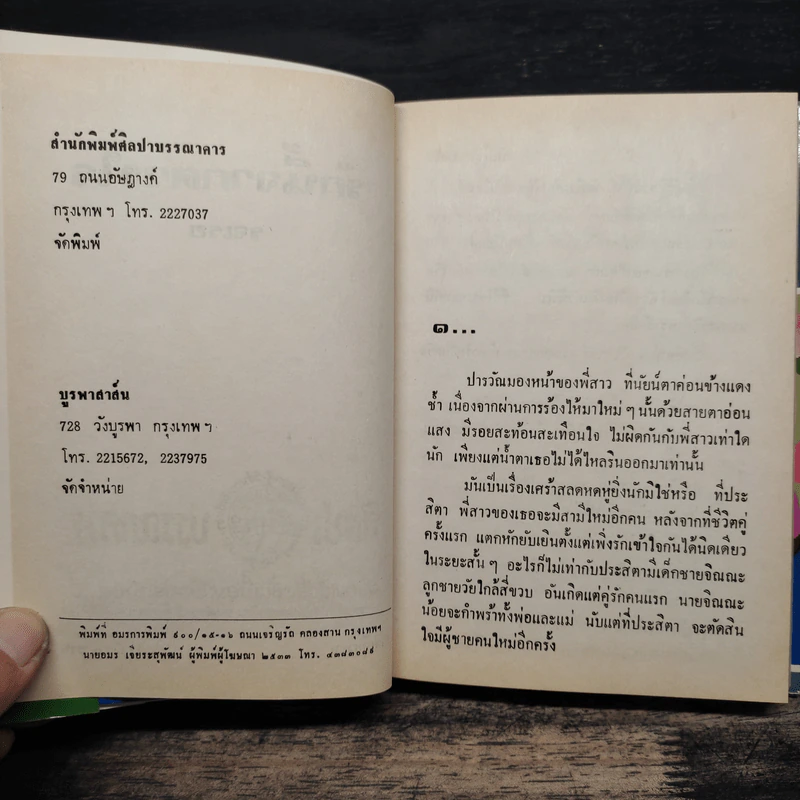 สำนักพิมพ์ศิลปาบรรณาคาร
79 ถนนอัษฎางค์
กรุงเทพฯ โทร. 2227037
จัดพิมพ์
บูรพาสาส์น
728 วังบูรพา กรุงเทพฯ
โทร. 2215672, 2237975
จัดจำหน่าย
พิมพ์ที่ อมรการพิมพ์ ๙๐๐/๑๕-๑๖ ถนนเจริญรัถ คลองสาน กรุงเทพฯ
นายอมร เจียระสุพัฒน์ ผู้พิมพ์ผู้โฆษณา ๒๕๓๓ โทร. ๔๓๘๓๐๘๕
๑...
ปารวัณมองหน้าของพี่สาว ที่นัยน์ตาค่อนข้างแดง
ช้ำ เนื่องจากผ่านการร้องไห้มาใหม่ ๆ นั้นด้วยสายตาอ่อน
แสง มีรอยสะท้อนสะเทือนใจ ไม่ผิดกันกับพี่สาวเท่าใด
นัก เพียงแต่น้ำตาเธอไม่ได้ไหลรินออกมาเท่านั้น
มันเป็นเรื่องเศร้าสลดหดหู่ยิ่งนักมิใช่หรือ ที่ประ
สิตา พี่สาวของเธอจะมีสามีใหม่อีกคน หลังจากที่ชีวิตคู่
ครั้งแรก แตกหักยับเยินตั้งแต่เพิ่งรักเข้าใจกันได้นิดเดียว
ในระยะสั้น ๆ อะไรก็ไม่เท่ากับประสิตามีเด็กชายจิณณะ
ลูกชายวัยใกล้สี่ขวบ อันเกิดแต่คู่รักคนแรก นายจิณณะ
น้อยจะกำพร้าทั้งพ่อและแม่ นับแต่ที่ประสิตา จะตัดสิน
ใจมีผู้ชายคนใหม่อีกครั้ง